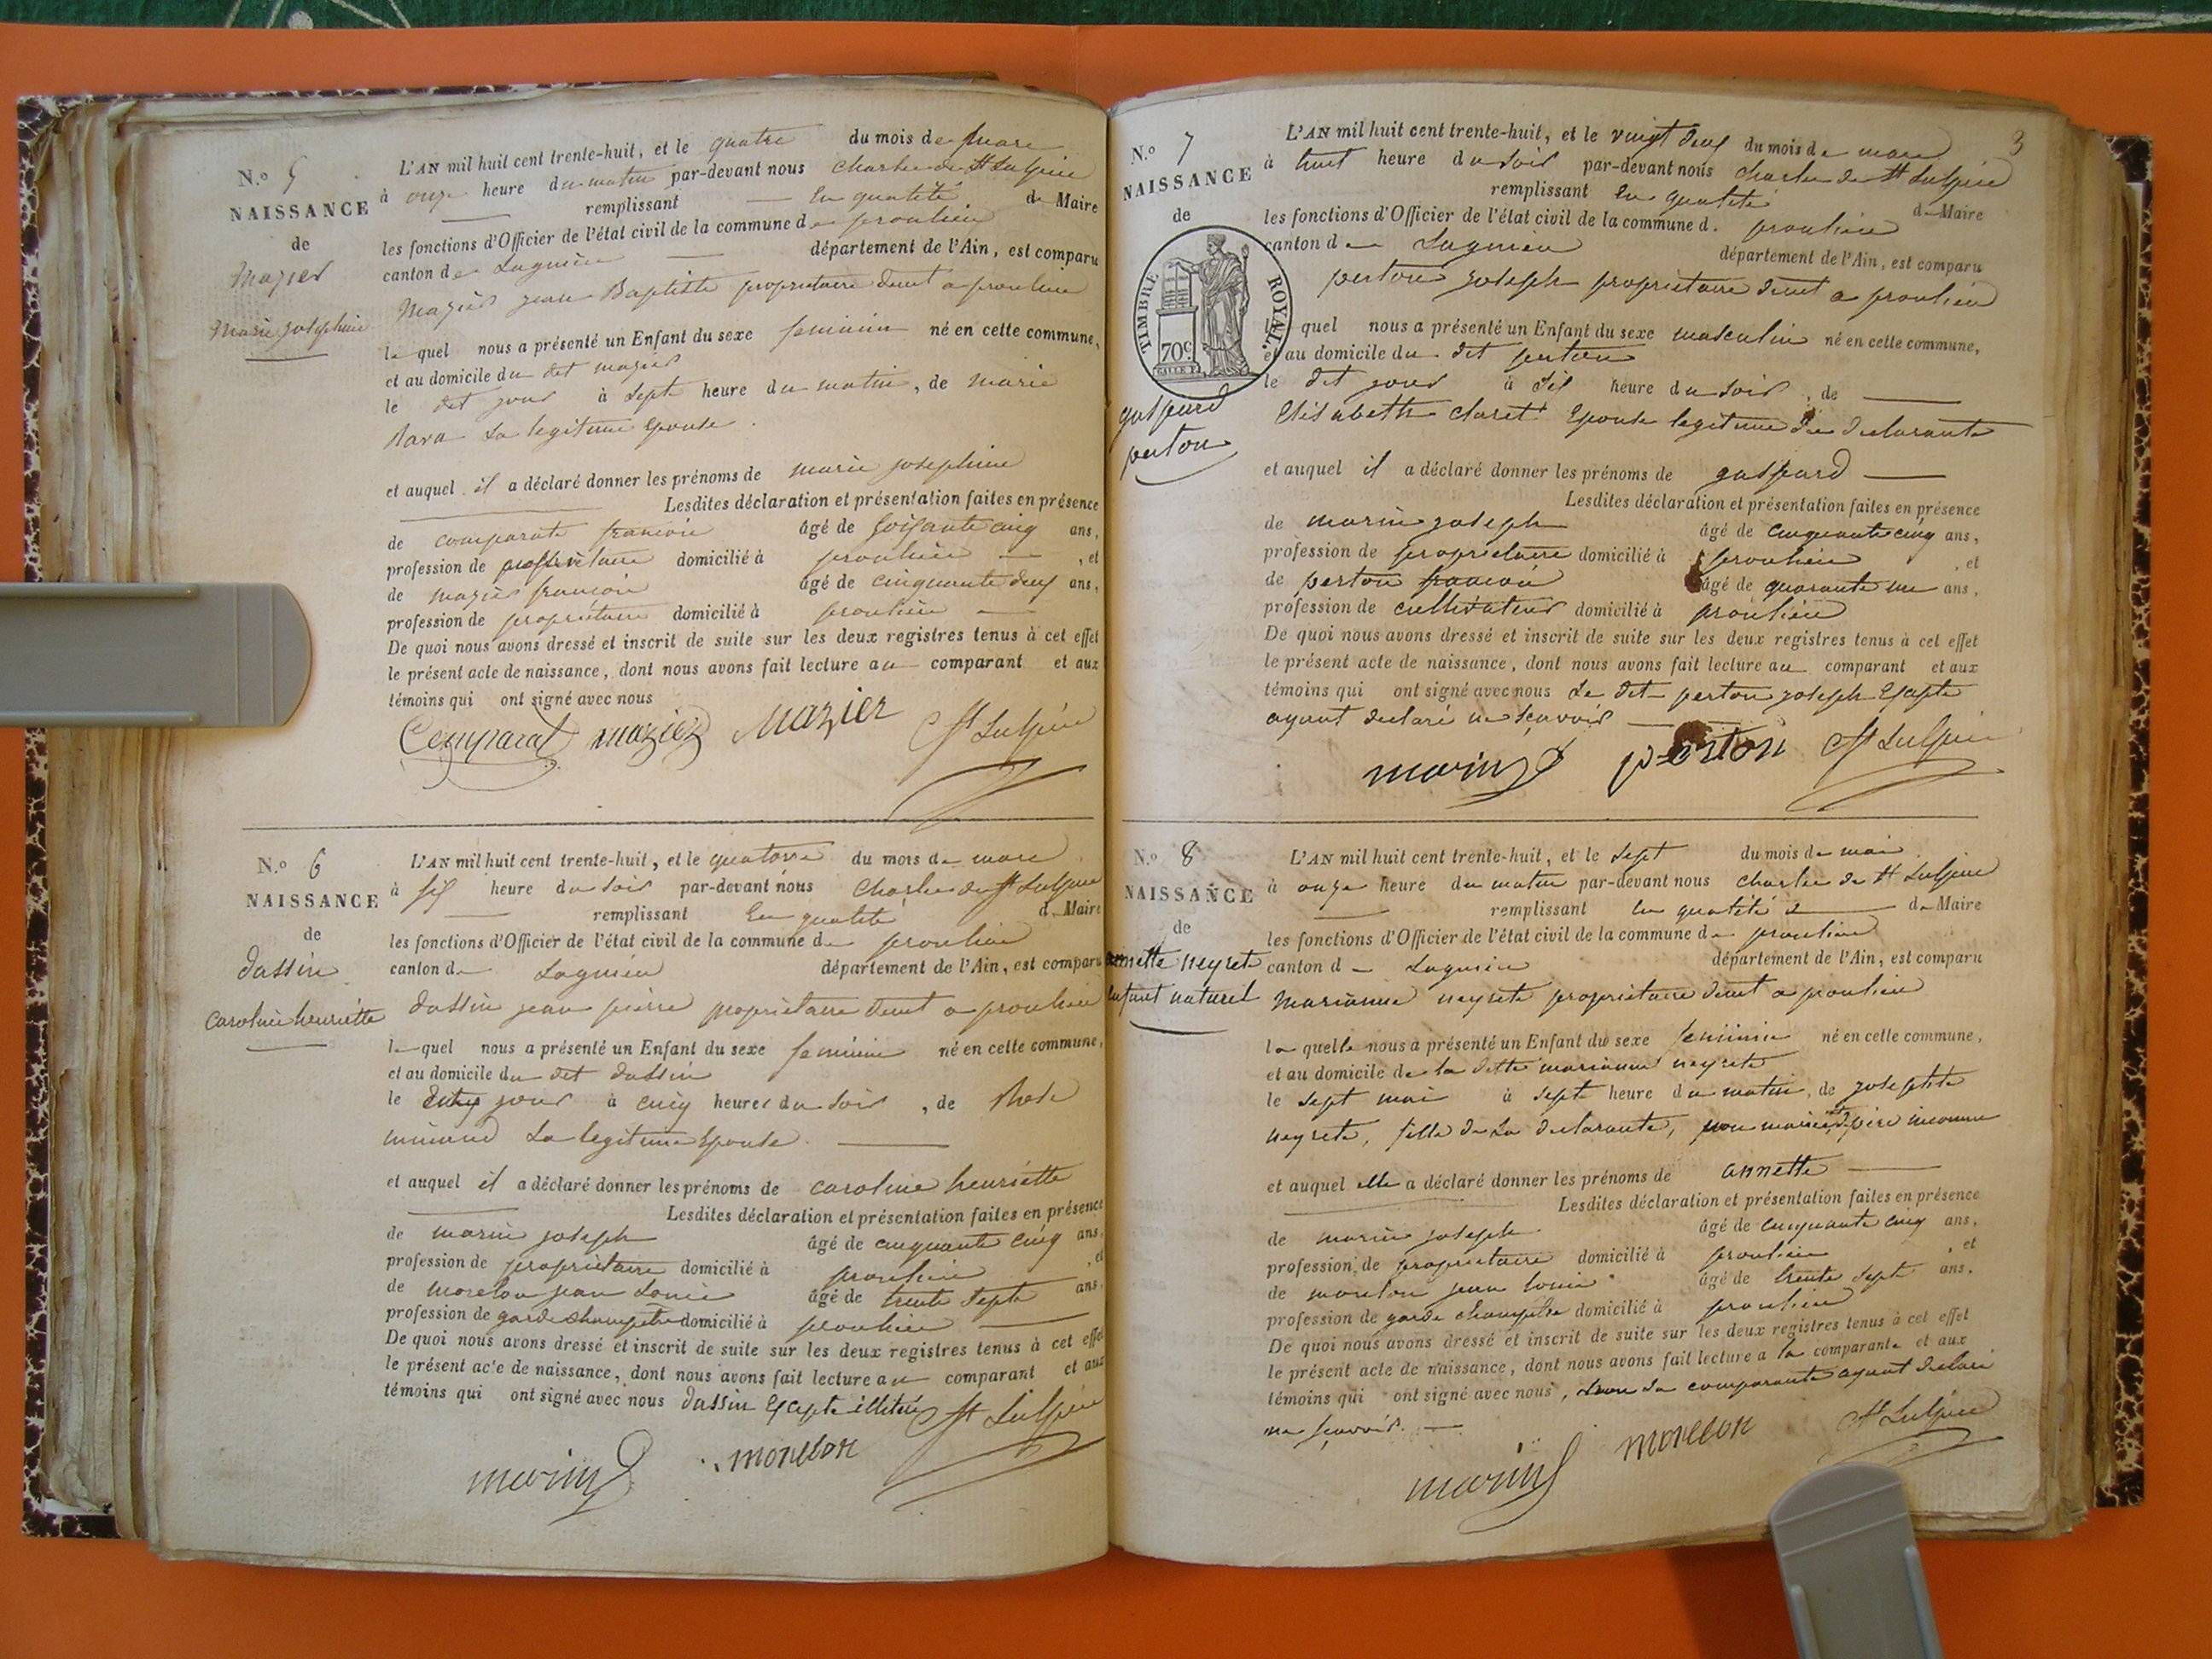 N.o 5
NAISSANCE
de
Mazier
Marie josephine
L'AN mil huit cent trente-huit, et le quatre du mois de mars
à onze heure du matin par-devant nous Charles de St Sulpice
remplissant en qualité de Maire
les fonctions d'Officier de l'état civil de la commune de proulieu
canton de Lagnieu département de l'Ain, est comparu
Mazier jean Baptiste proprietaire demt a proulieu
le quel nous a présenté un Enfant du sexe feminin né en cette commune,
et au domicile du dit mazier
le dit jour à sept heure du matin, de marie
Rava sa legitime Epouse.
et auquel il a déclaré donner les prénoms de marie josephine
Lesdites déclaration et présentation faites en présence
de comparat francois âgé de soisante cinq ans,
profession de proprietaire domicilié à proulieu, et
de mazier francois âgé de cinquante deux ans,
profession de proprietaire domicilié à proulieu
De quoi nous avons dressé et inscrit de suite sur les deux registres tenus à cet effet
le présent acte de naissance, dont nous avons fait lecture au comparant et aux
témoins qui ont signé avec nous
Comparat mazier Mazier St Sulpice
N.o 6
NAISSANCE
de
dassin
caroline henriette
L'AN mil huit cent trente-huit, et le quatorze du mois de mars
à six heure du soir par-devant nous Charles de St Sulpice
remplissant en qualité de Maire
les fonctions d'Officier de l'état civil de la commune de proulieu
canton de Lagnieu département de l'Ain, est comparu
dassin jean pierre proprietaire demt a proulieu
le quel nous a présenté un Enfant du sexe feminin né en cette commune,
et au domicile du dit dassin
le jour à cinq heures du soir, de Rose
sa legitime Epouse.
et auquel il a déclaré donner les prénoms de caroline henriette
Lesdites déclaration et présentation faites en présence
de marin joseph âgé de cinquante cinq ans,
profession de proprietaire domicilié à proulieu, et
de morelon jean Louis âgé de trente sept ans,
profession de garde champetre domicilié à proulieu
De quoi nous avons dressé et inscrit de suite sur les deux registres tenus à cet effet
le présent acte de naissance, dont nous avons fait lecture au comparant et aux
témoins qui ont signé avec nous dassin Excepte St Sulpice
marin morelon
3
N.o 7
NAISSANCE
de
TIMBRE ROYAL.
70c
gaspard
perton
L'AN mil huit cent trente-huit, et le vingt deux du mois de mars
à huit heure du soir par-devant nous charles de St Sulpice
remplissant en qualité de Maire
les fonctions d'Officier de l'état civil de la commune d. proulieu
canton de Lagnieu département de l'Ain, est comparu
perton joseph proprietaire demt a proulieu
le quel nous a présenté un Enfant du sexe masculin né en cette commune,
et au domicile du dit perton
le dit jour à six heure du soir, de
Elisabeth claret Epouse legitime du declarante
et auquel il a déclaré donner les prénoms de gaspard
Lesdites déclaration et présentation faites en présence
de marin joseph âgé de cinquante cinq ans,
profession de proprietaire domicilié à proulieu, et
de perton francois âgé de quarante un ans,
profession de cultivateur domicilié à proulieu
De quoi nous avons dressé et inscrit de suite sur les deux registres tenus à cet effet
le présent acte de naissance, dont nous avons fait lecture au comparant et aux
témoins qui ont signé avec nous Le dit perton joseph Excepte
ayant declaré ne scavoir
marin perton St Sulpice
N.o 8
NAISSANCE
de
annette neyret
enfant naturel
L'AN mil huit cent trente-huit, et le sept du mois de mai
à onze heure du matin par-devant nous charles de St Sulpice
remplissant en qualité de Maire
les fonctions d'Officier de l'état civil de la commune de proulieu
canton de Lagnieu département de l'Ain, est comparu
Marianne neyrete proprietaire demt a proulieu
la quelle nous a présenté un Enfant du sexe feminin né en cette commune,
et au domicile de la ditte marianne neyrete
le sept mai à sept heure du matin, de josephte
neyrete, fille de La declarante, non mariée, père inconnu
et auquel elle a déclaré donner les prénoms de annette
Lesdites déclaration et présentation faites en présence
de marin joseph âgé de cinquante cinq ans,
profession de proprietaire domicilié à proulieu, et
de morelon jean Louis âgé de trente sept ans,
profession de garde champetre domicilié à proulieu
De quoi nous avons dressé et inscrit de suite sur les deux registres tenus à cet effet
le présent acte de naissance, dont nous avons fait lecture a la comparante et aux
témoins qui ont signé avec nous, non La comparante ayant declaré
ne scavoir.
marin morelon St Sulpice